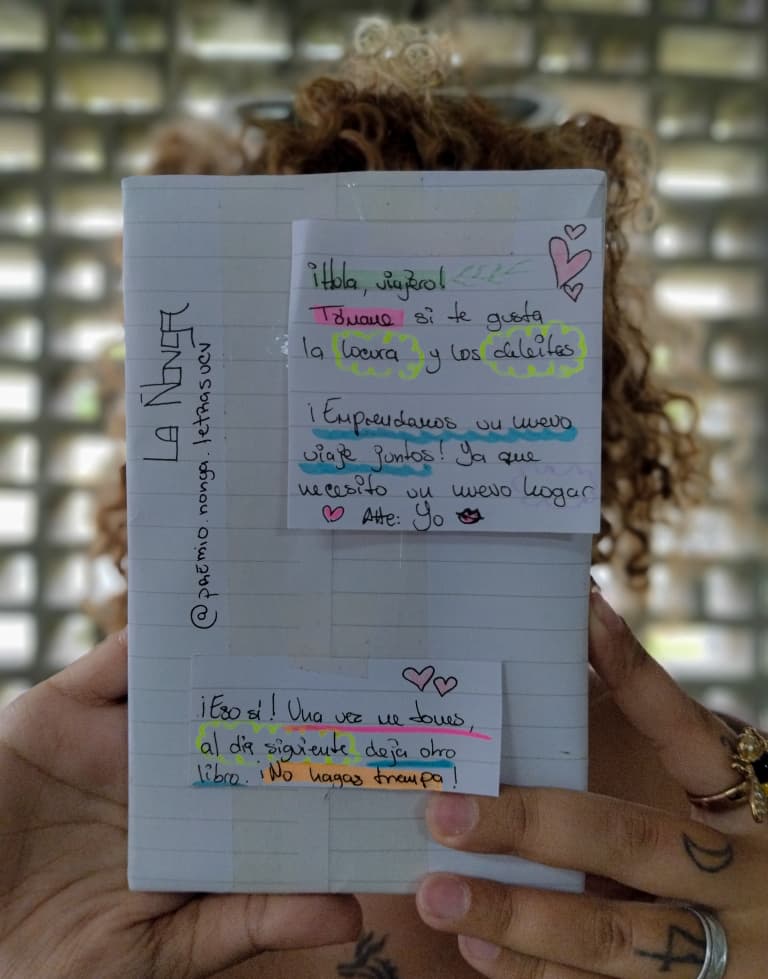 LA ÑONGA
@premio.nonga.letrasucv
¡Hola, viajero!
Tómame si te gusta
la locura y los deleites
¡Emprendamos un nuevo
viaje juntos! Ya que
necesito un nuevo hogar
Atte: Yo
¡Eso sí! Una vez me tomes,
al día siguiente deja otro
libro. ¡No hagas trampa!